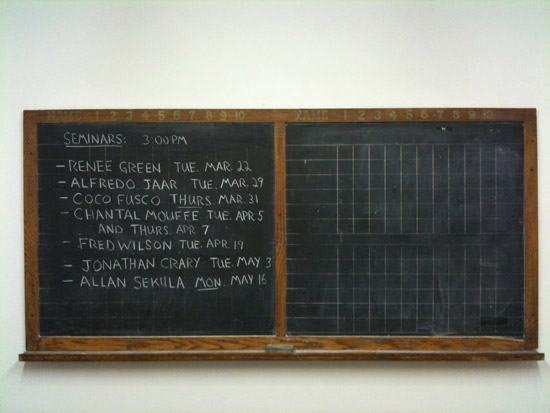 NAME 1 2 3 4 5 6 7 8 9 10
NAME 1 2 3 4 5 6 7 8 9 10
SEMINARS: 3:00 PM
– RENEE GREEN TUE. MAR. 22
– ALFREDO JAAR TUE. MAR. 29
– COCO FUSCO THURS. MAR. 31
– CHANTAL MOUFFE TUE. APR 5
AND THURS. APR. 7
– FRED WILSON TUE. APR. 19
– JONATHAN CRARY TUE. MAY 3
– ALLAN SEKULA MON. MAY 16